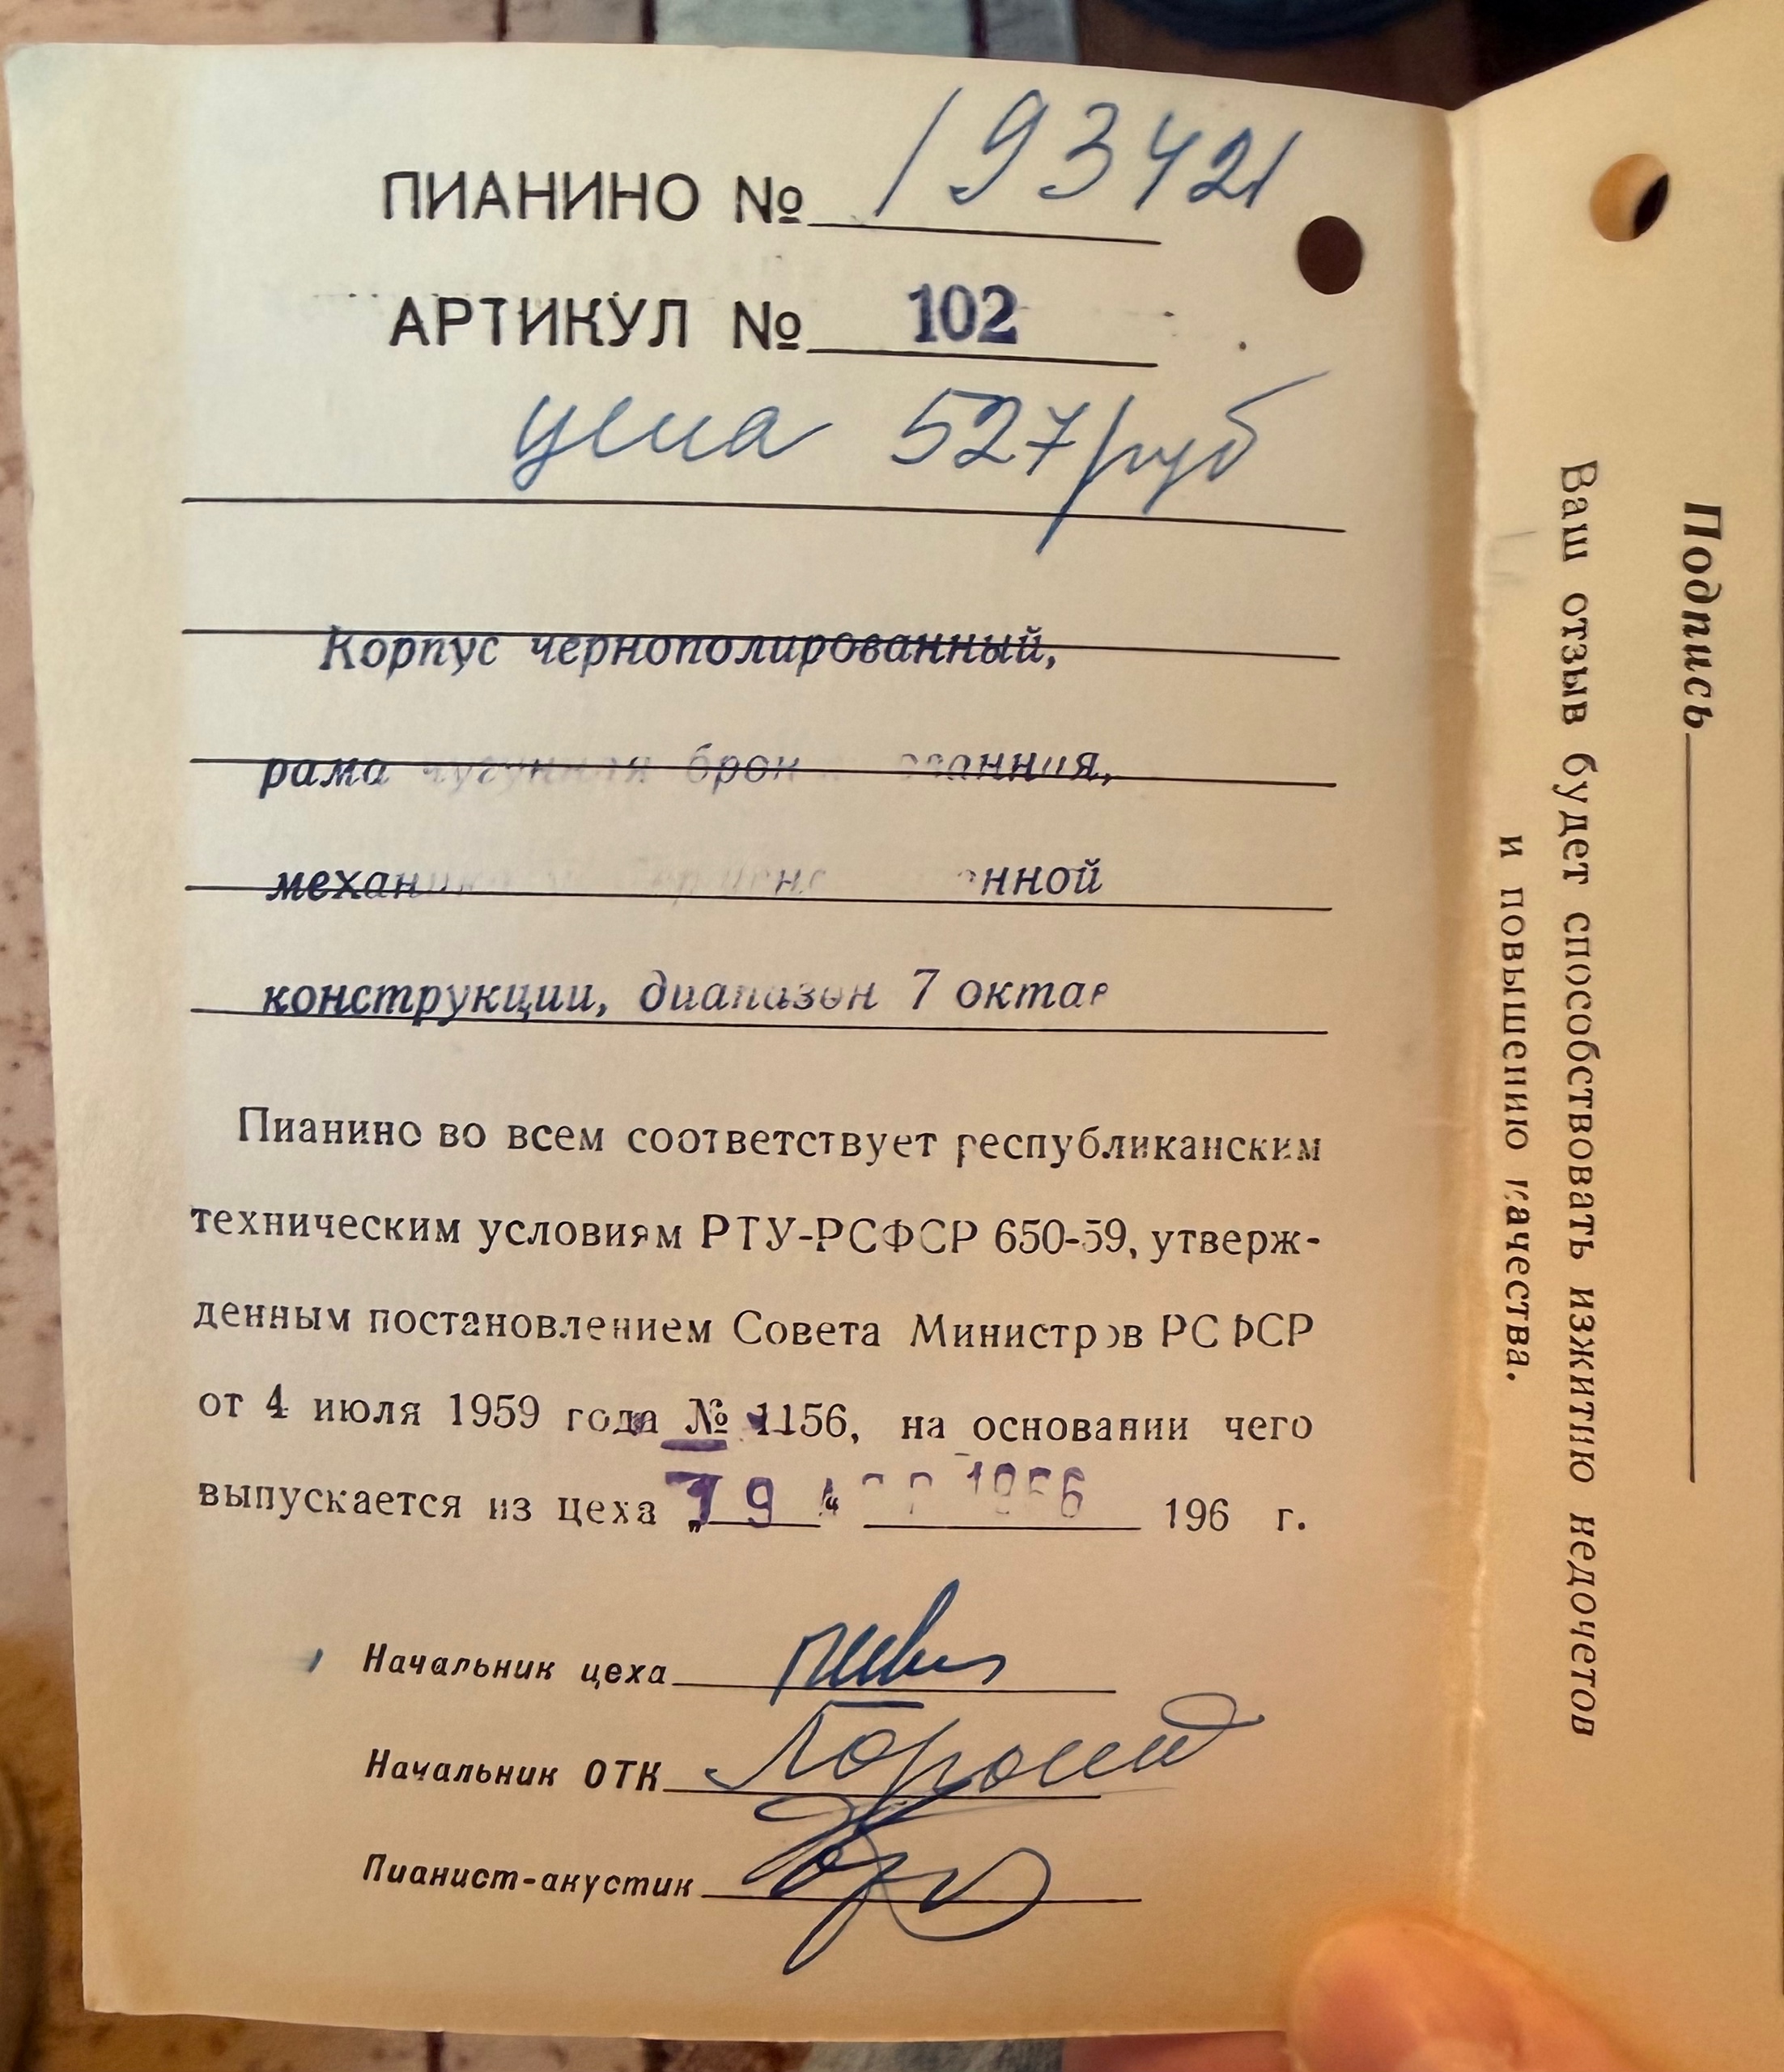 ПИАНИНО № 193421
АРТИКУЛ № 102
цена 527 руб
Корпус чернополированный,
рама чугунная
конструкции, диапазон 7 октав
Пианино во всем соответствует республиканским
техническим условиям РТУ-РСФСР 650-59, утверж-
денным постановлением Совета Министров РСФСР
от 4 июля 1959 года № 1156, на основании чего
выпускается из цеха „19“ 1966 196 г.
Начальник цеха
Начальник ОТК
Пианист-акустик
Подпись
Ваш отзыв будет способствовать изжитию недочетов
и повышению качества.